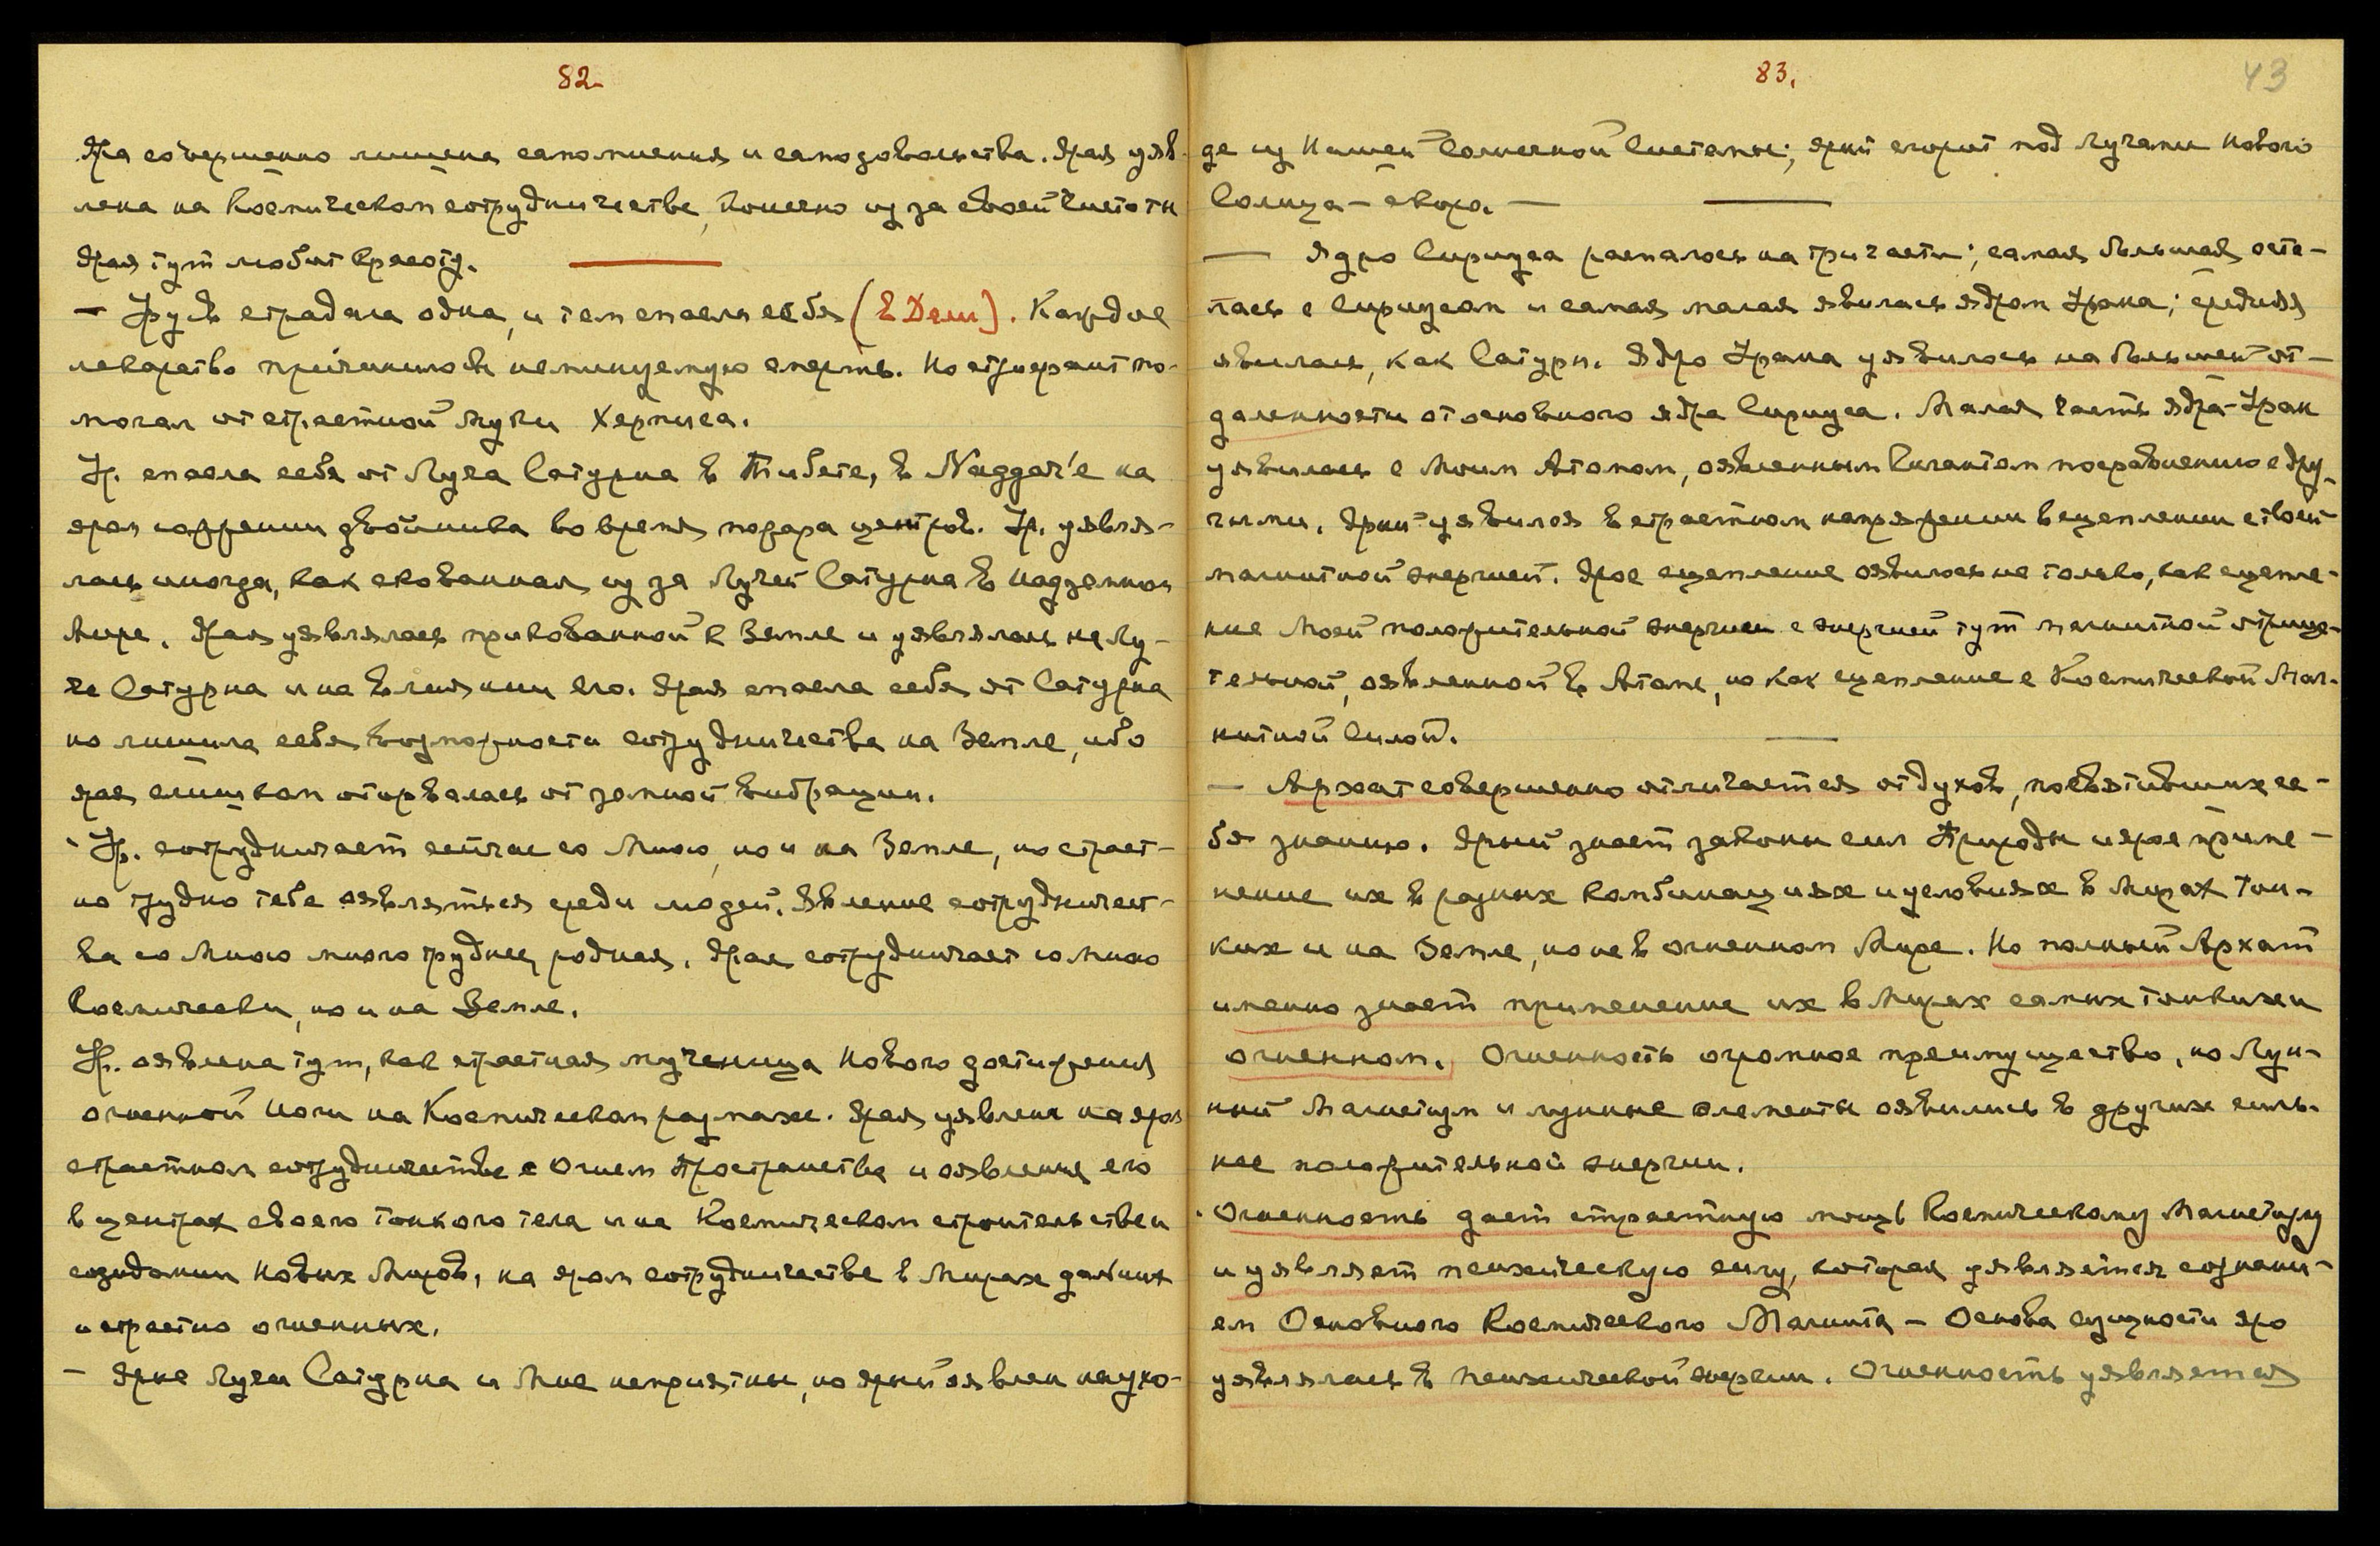 82.
Яра совершенно лишена самомнения и самодовольства. Ярая уяв-
лена на Космическом сотрудничестве, конечно из за своей чистоты
Ярая тут любит красоту.
— Урусв. страдала одна, и тем спасла себя (в Дели). Каждое
лекарство причинило бы неминуемую смерть. Но строфант по-
могал от страстной муки Херпеса.
Ур. спасла себя от Луча Сатурна в Тибете, в Naggar'е на
яром сожжении двойника во время пожара центров. Ур. уявля-
лась иногда, как скованная из за Лучей Сатурна в Надземном
Мире. Ярая уявлялась прикованной к Земле и уявлялась на Лу-
че Сатурна и на влиянии его. Ярая спасла себя от Сатурна
но лишила себя возможности сотрудничества на Земле, ибо
ярая слишком оторвалась от земной вибрации.
Ур. сотрудничает сейчас со Мною, но и на Земле, но страст-
но трудно тебе оявляться среди людей. Явление сотрудничест-
ва со Мною много труднее, родная. Ярая сотрудничает со мною
Космически, но и на Земле.
Ур. оявлена тут, как страстная мученица Нового достижения
огненной Йоги на Космическом размахе. Ярая уявлена на яром
страстном сотрудничестве с Огнем Пространства и оявление его
в центрах своего тонкого тела и на Космическом строительстве и
созидании Новых Миров, на яром сотрудничестве в Мирах дальних
и страстно огненных.
— Ярые Лучи Сатурна и Мне неприятны, но ярый оявлен на ухо-
83. 43
де из Нашей Солнечной Системы; ярый сгорит под Лучами Нового
Солнца — скоро. —
— Ядро Сириуса распалось на три части; самая большая оста-
лась с Сириусом и самая малая явилась ядром Урана; средняя
явилась, как Сатурн. Ядро Урана уявилось на большей от-
даленности от основного ядра Сириуса. Малая часть ядра — Уран
уявилась с Моим Атомом, оявленным Гигантом по сравнению с дру-
гими. Ярый уявился в страстном напряжении в сцеплении с твоей
магнитной энергией. Ярое сцепление оявилось не только, как сцепле-
ние Моей положительной энергии с энергией тут магнитной отрица-
тельной, оявленной в Атоме, но как сцепление с Космической Маг-
нитной Силой.
— Архат совершенно отличается от духов, посвятивших се-
бя знанию. Ярый знает законы сил Природы и ярое приме-
нение их в разных комбинациях и условиях в Мирах Тон-
ких и на Земле, но не в огненном Мире. Но полный Архат
именно знает применение их в Мирах самых тонких и
огненном. Огненность огромное преимущество, но Лун-
ный Магнетизм и лунные элементы оявились в других силь-
нее положительной энергии.
Огненность дает страстную мощь Космическому Магнетизму
и уявляет психическую силу, которая уявляется сознани-
ем Основного Космического Магнита — Основа сущности яро
уявлялась в психической энергии. Огненность уявляется